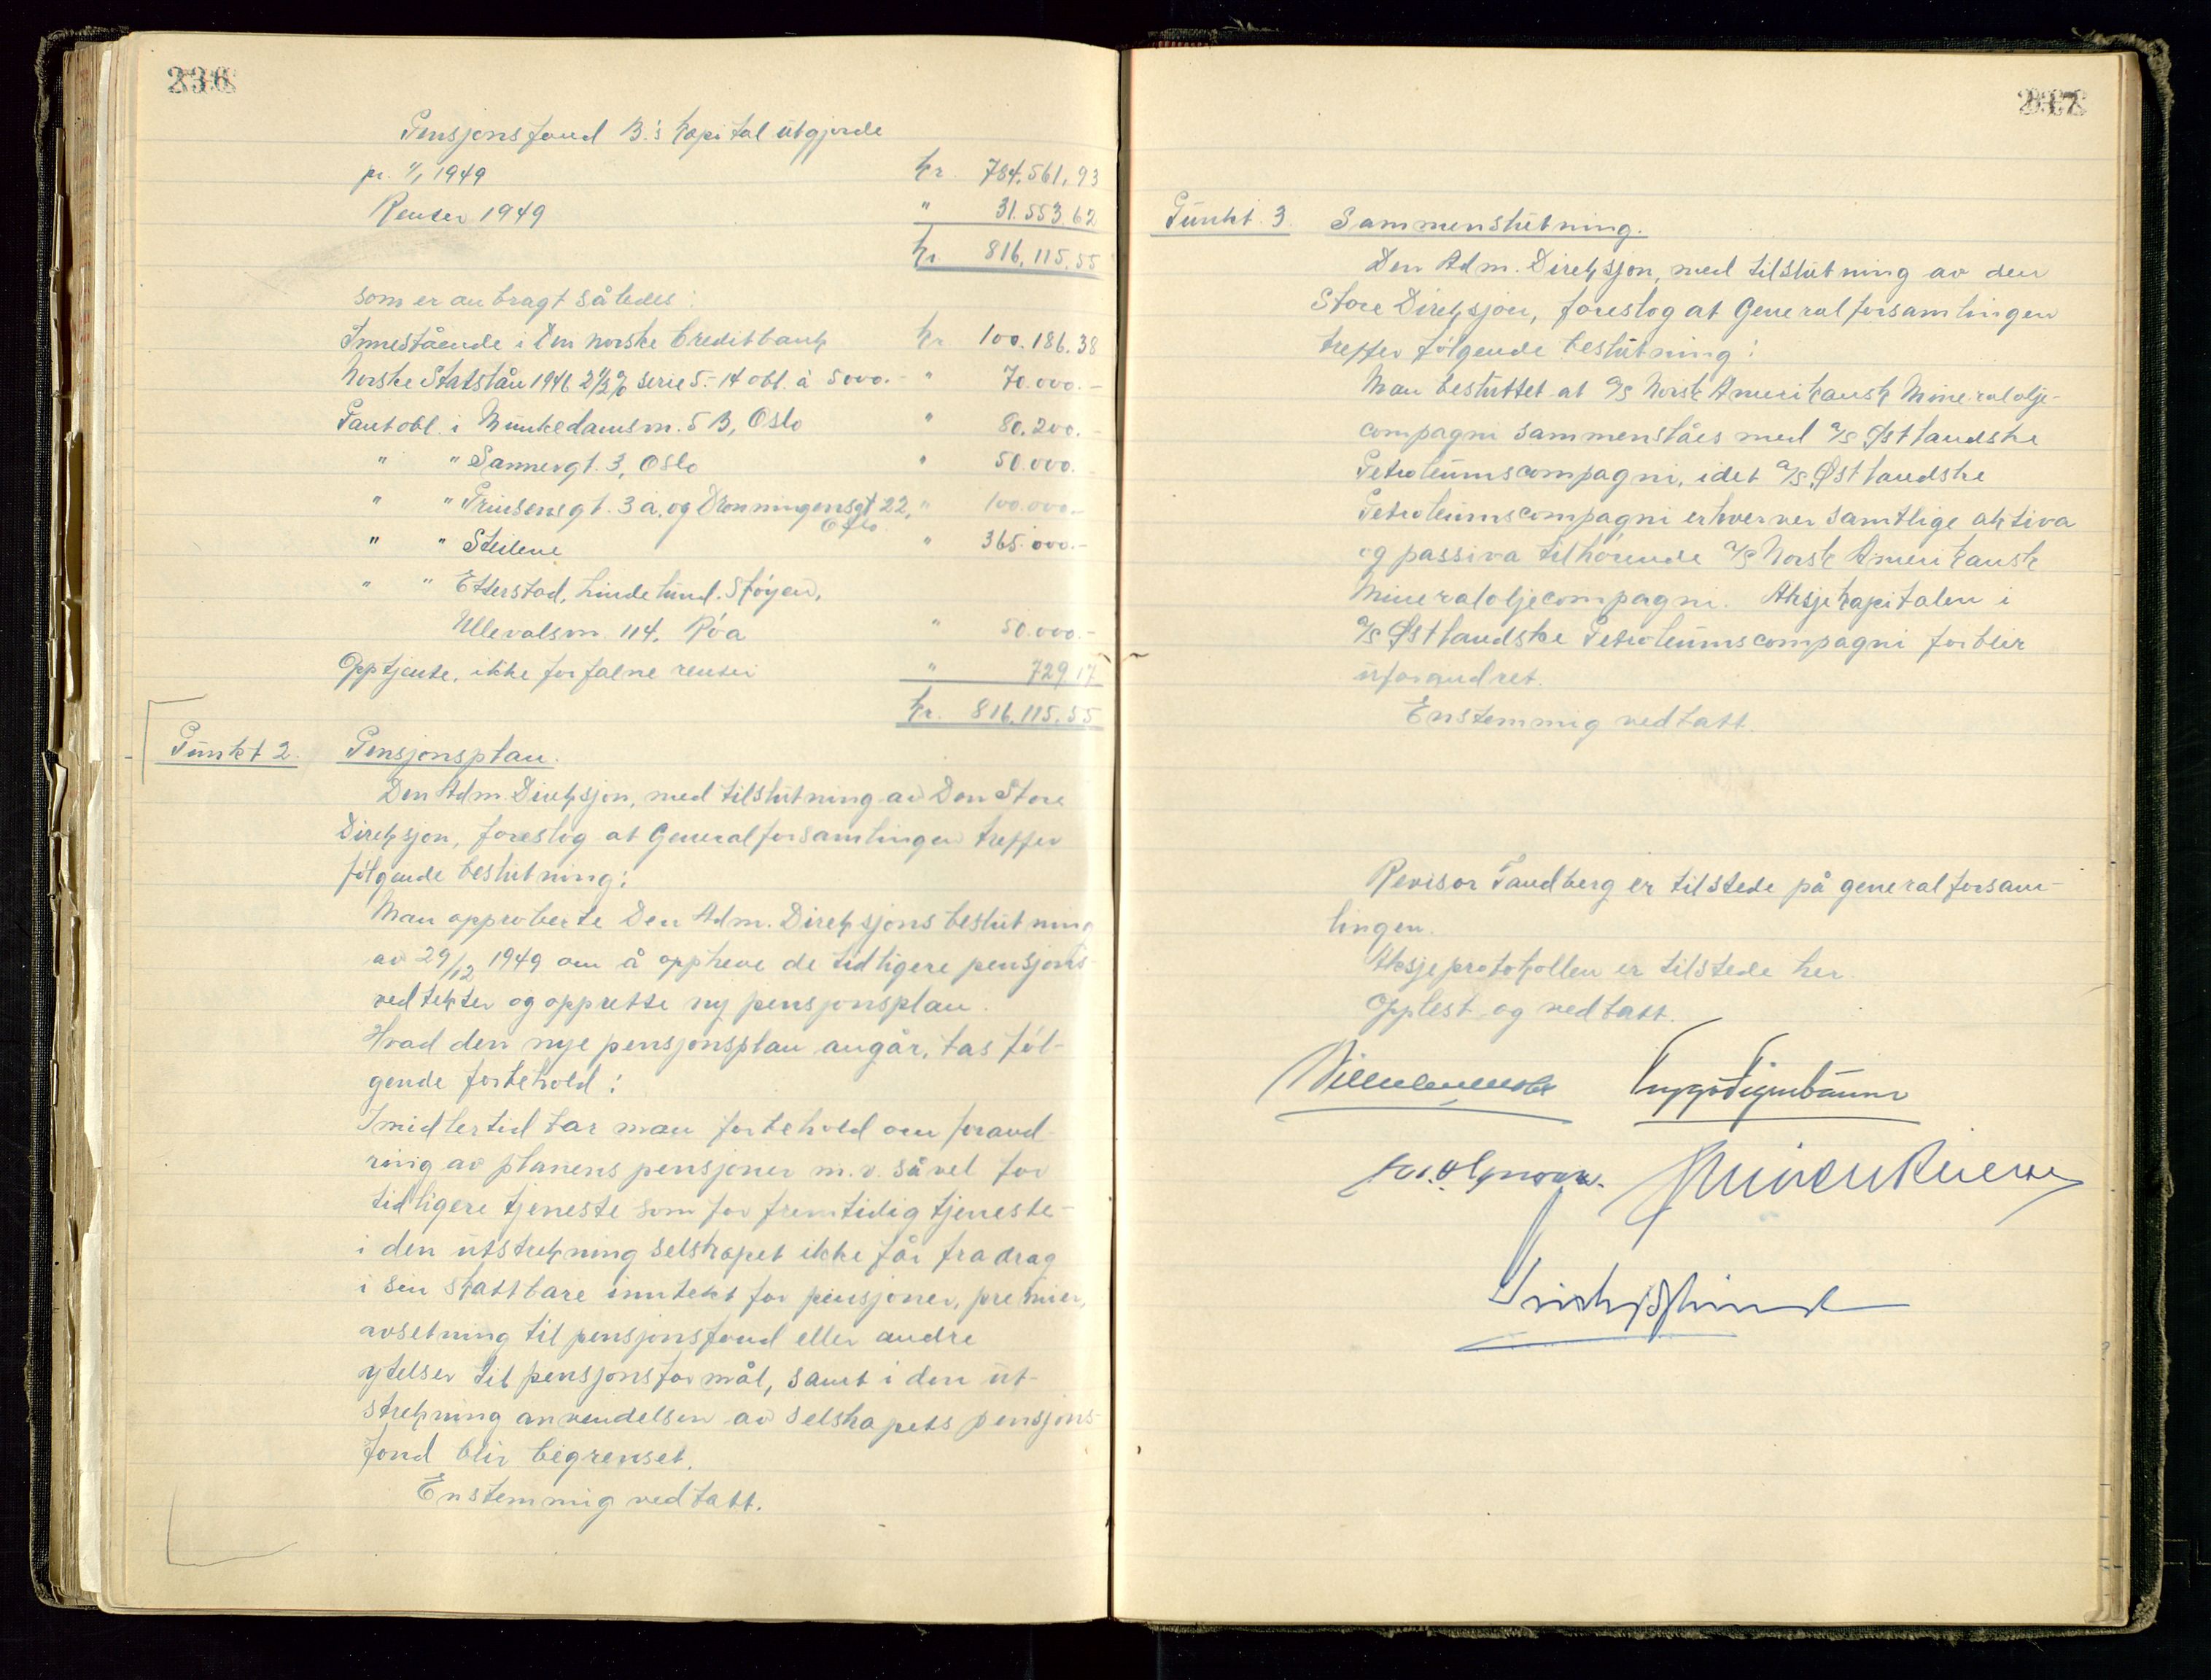 236
Pensjonsfond B.'s kapital utgjorde
pr. 1/1 1949 kr. 784.561,93
Renter 1949 " 31.553,62
kr. 816.115,55
som er anbragt således:
Innestående i Den norske Creditbank kr. 100.186,38
Norske Statslån 1946 2 1/2 % serie 5.- 14 obl. à 5000.- " 70.000.-
Pantobl. i Munkedamsvn. 5 B, Oslo " 80.200.-
" " Sannergt. 3, Oslo " 50.000.-
" " Prinsensgt. 3 a. og Dronningensgt 22, " 100.000.-
Oslo
" " Steilene " 365.000.-
" " Etterstad, Lindelund, Støyen,
Ullevålsvn 114, Róa " 50.000.-
Opptjente, ikke forfalne renter " 729,17
kr. 816.115,55
Punkt 2. Pensjonsplan.
Den Adm. Direksjon, med tilslutning av Den Store
Direksjon, foreslog at Generalforsamlingen treffer
følgende beslutning:
Man approberte Den Adm. Direksjons beslutning
av 29/12 1949 om å oppheve de tidligere pensjons-
vedtekter og opprette ny pensjonsplan.
Hvad den nye pensjonsplan angår, tas føl-
gende forbehold:
Imidlertid tar man forbehold om forand-
ring av planens pensjoner m.v. såvel for
tidligere tjeneste som for fremtidig tjeneste -
i den utstrekning selskapet ikke får fradrag
i sin skattbare inntekt for pensjoner, premier,
avsetning til pensjonsfond eller andre
ytelser til pensjonsformål, samt i den ut-
strekning anvendelsen av selskapets pensjons-
fond blir begrenset.
Enstemmig vedtatt.
237
Punkt. 3. Sammenslutning.
Den Adm. Direksjon, med tilslutning av den
Store Direksjon, foreslog at Generalforsamlingen
treffer følgende beslutning:
Man besluttet at A/S Norsk Amerikansk Mineralolje-
compagni sammenslåes med A/S Østlandske
Petroleumscompagni, idet A/S Østlandske
Petroleumscompagni erhverver samtlige aktiva
og passiva tilhørende A/S Norsk Amerikansk
Mineraloljecompagni. Aksjekapitalen i
A/S Østlandske Petroleumscompagni forblir
uforandret.
Enstemmig vedtatt.
Revisor Tandberg er tilstede på generalforsam-
lingen.
Aksjeprotokollen er tilstede her.
Opplest og vedtatt.